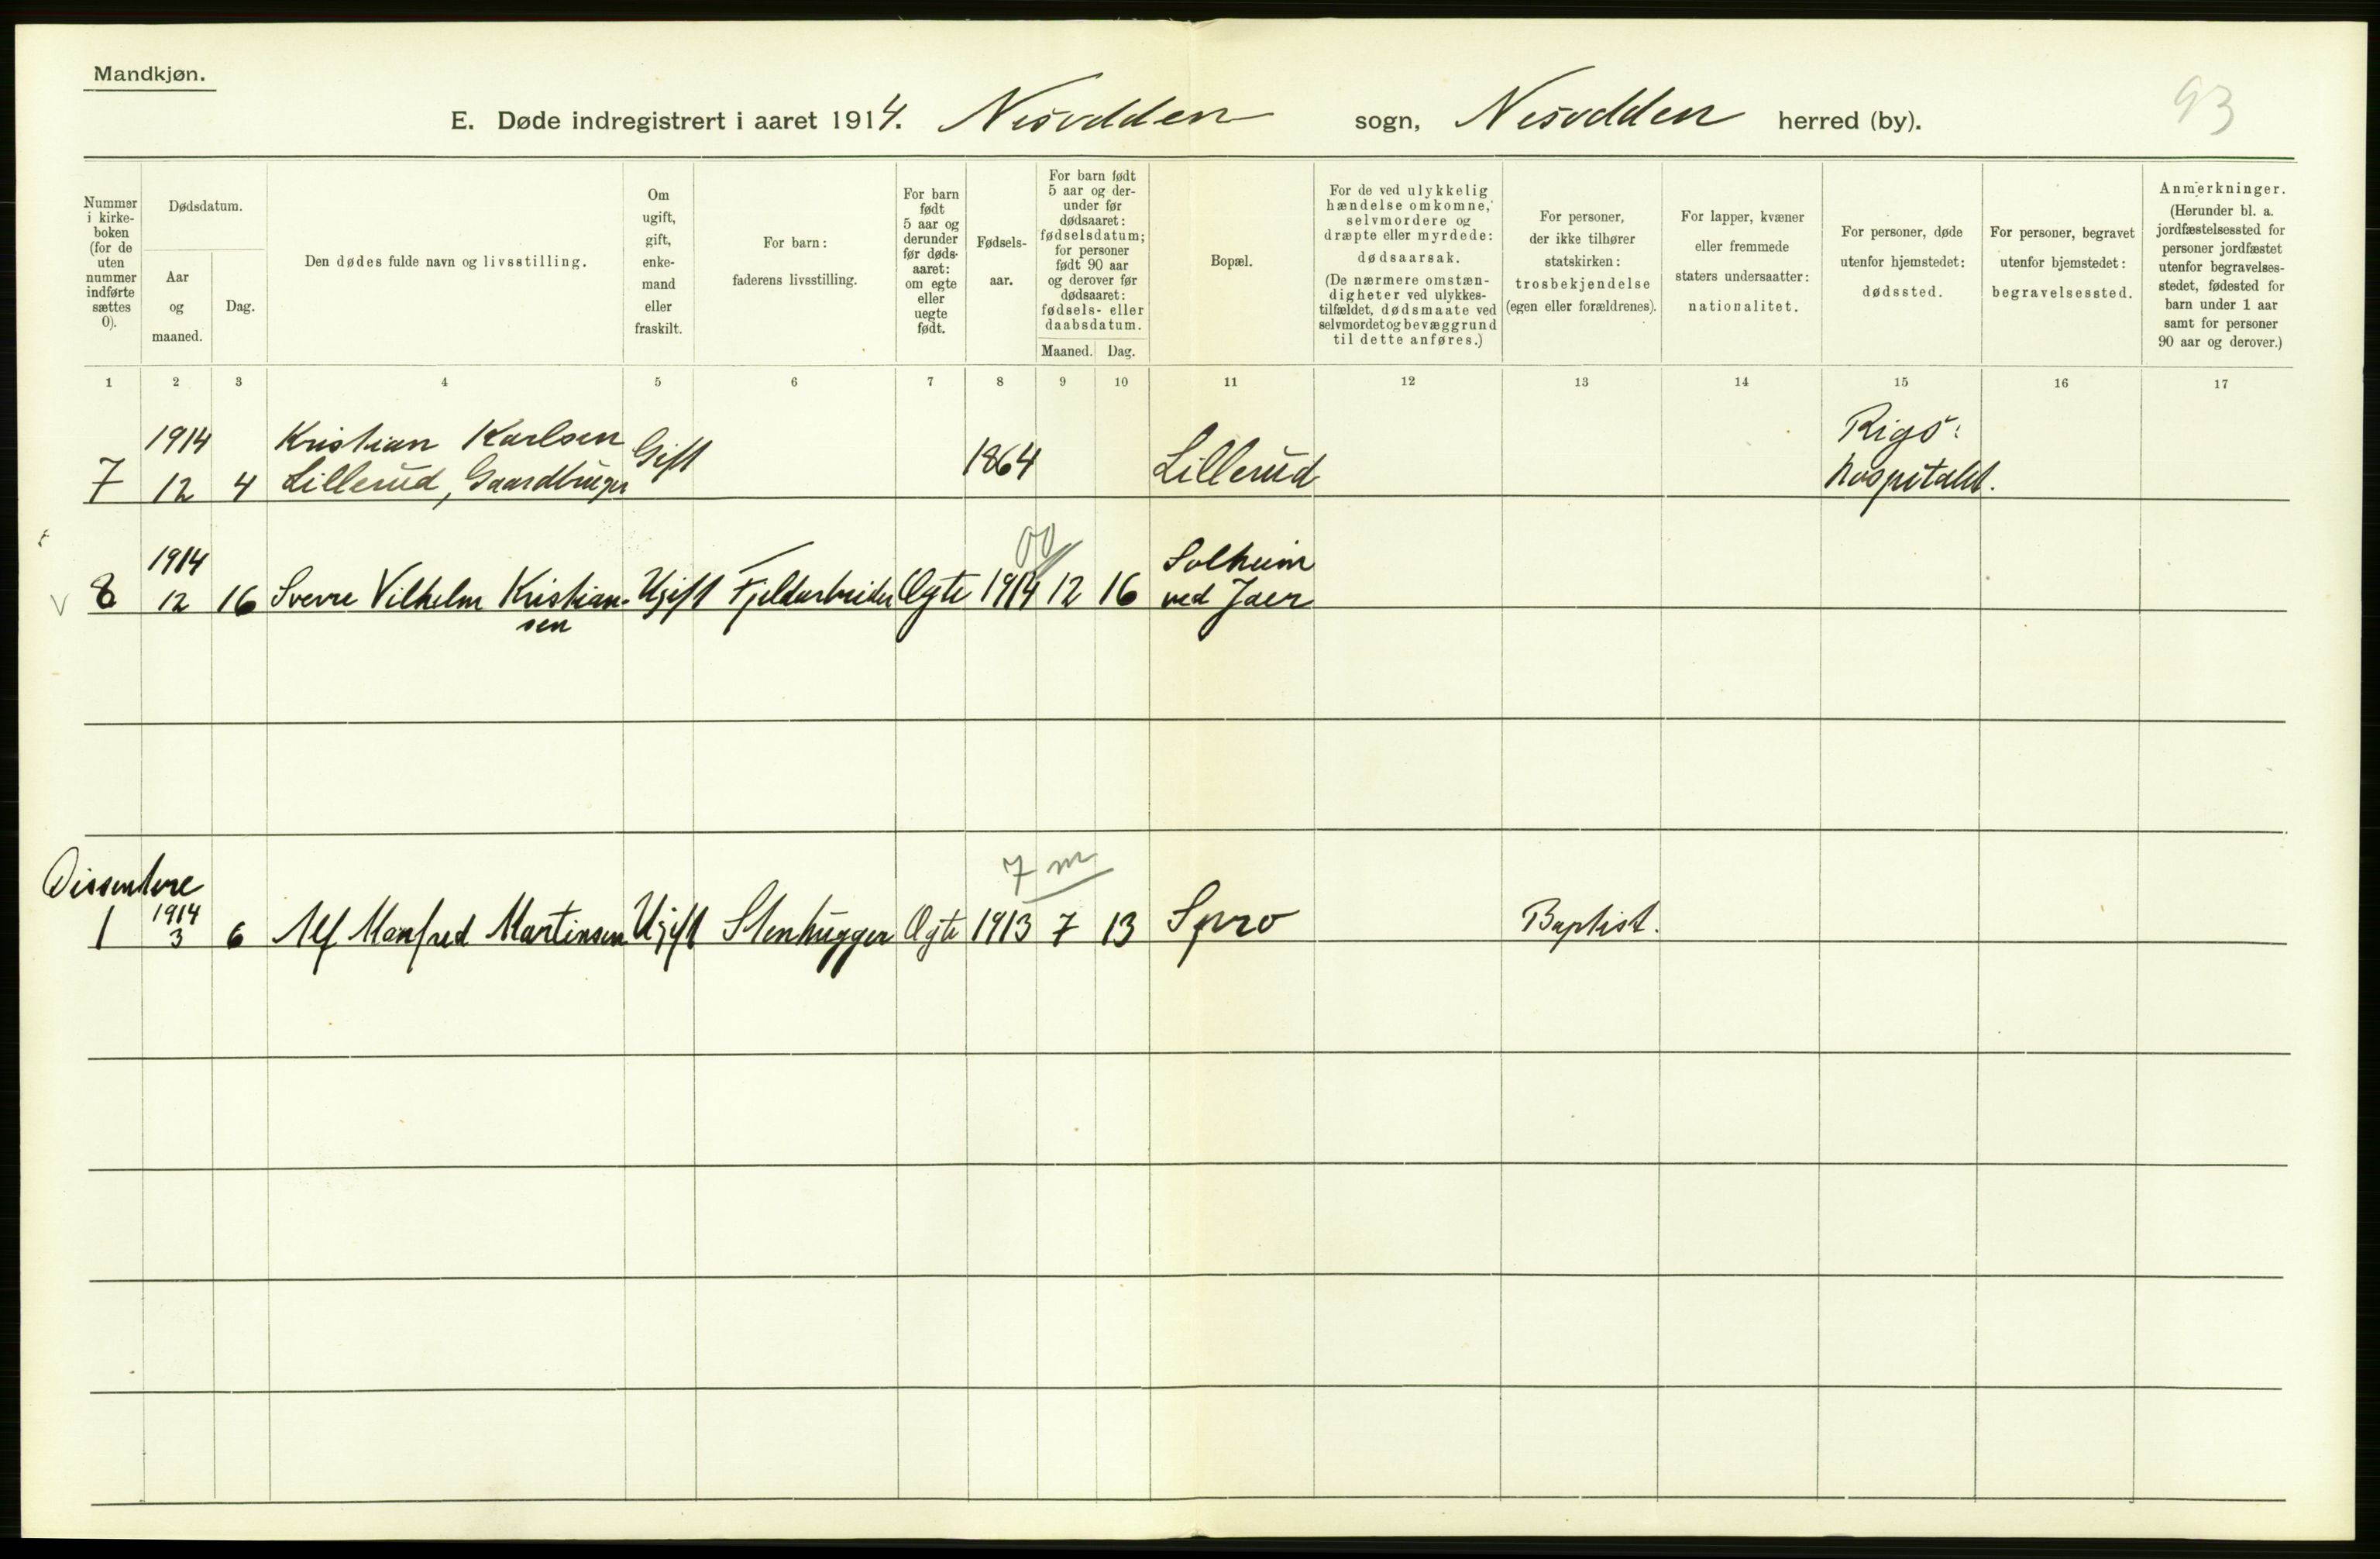 Mandkjøn.
E. Døde indregistrert i aaret 1914. Nesodden sogn, Nesodden herred (by).
93
Nummer
i kirke-
boken
(for de
uten
nummer
indførte
sættes
0).
Dødsdatum.
Aar
og
maaned.
Dag.
Den dødes fulde navn og livsstilling.
Om
ugift,
gift,
enke-
mand
eller
fraskilt.
For barn:
faderens livsstilling.
For barn
født
5 aar og
derunder
før døds-
aaret:
om egte
eller
uegte
født.
Fødsels-
aar.
For barn født
5 aar og der-
under før
dødsaaret:
fødselsdatum;
for personer
født 90 aar
og derover før
dødsaaret:
fødsels- eller
daabsdatum.
Maaned. Dag.
Bopæl.
For de ved ulykkelig
hændelse omkomne,
selvmordere og
dræpte eller myrdede:
dødsaarsak.
(De nærmere omstæn-
digheter ved ulykkes-
tilfældet, dødsmaate ved
selvmordet og bevæggrund
til dette anføres.)
For personer,
der ikke tilhører
statskirken:
trosbekjendelse
(egen eller forældrenes).
For lapper, kvæner
eller fremmede
staters undersaatter:
nationalitet.
For personer, døde
utenfor hjemstedet:
dødssted.
For personer, begravet
utenfor hjemstedet:
begravelsessted.
Anmerkninger.
(Herunder bl. a.
jordfæstelsessted for
personer jordfæstet
utenfor begravelses-
stedet, fødested for
barn under 1 aar
samt for personer
90 aar og derover.)
1 2 3 4 5 6 7 8 9 10 11 12 13 14 15 16 17
1914 Kristian Karlsen Gift 1864 Lillerud Rigs-
7 12 4 Lillerud, Gaardbruger hospitalet.
00
1914 Solheim
8 12 16 Sverre Vilhelm Kristian- Ugift Fjeldarbeider Ægte 1914 12 16 ved Jaer
sen
7 m
Dissentere
1914
1 3 6 Alf Manfred Martinsen Ugift Stenhugger Ægte 1913 7 13 Spro Baptist.